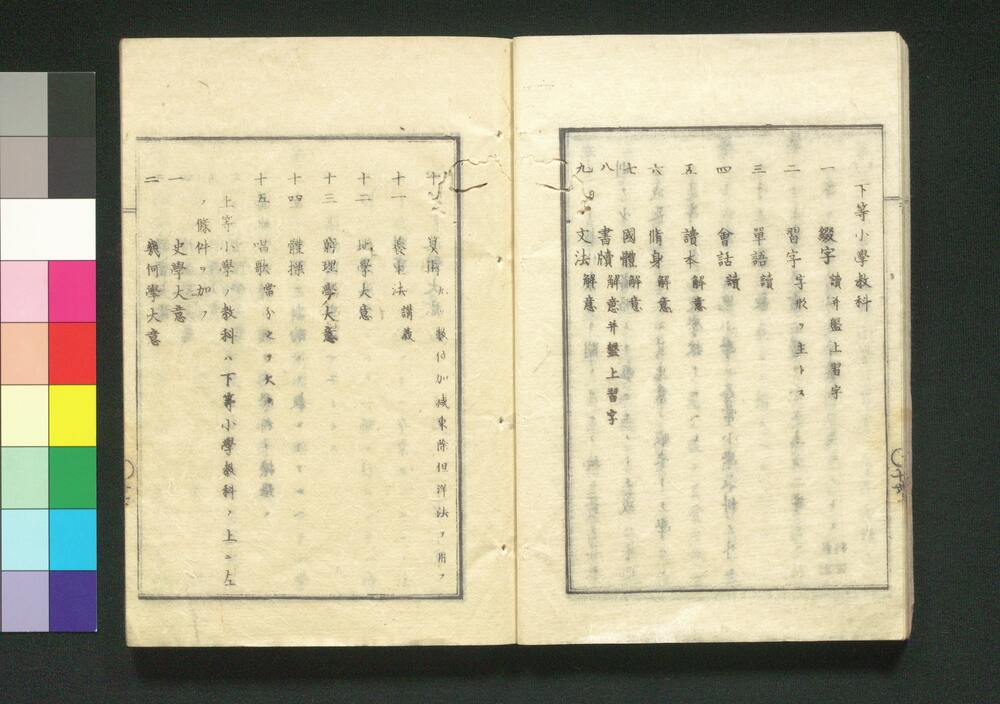 下等小學教科
一 綴字 讀并盤上習字
二 習字 字形ヲ主トス
三 單語 讀
四 會話 讀
五 讀本 解意
六 脩身 解意
七 國體 解意
八 書牘 解意并盤上習字
九 文法 解意
十 算術 九 數位加减乗除但洋法ヲ用フ
十一 養生法 講義
十二 地學大意
十三 窮理學大意
十四 體操
十五 唱歌 當分之ヲ欠ク
上等小學ノ教科ハ下等小學教科ノ上ニ左
ノ條件ヲ加フ
一 史學大意
二 幾何學大意